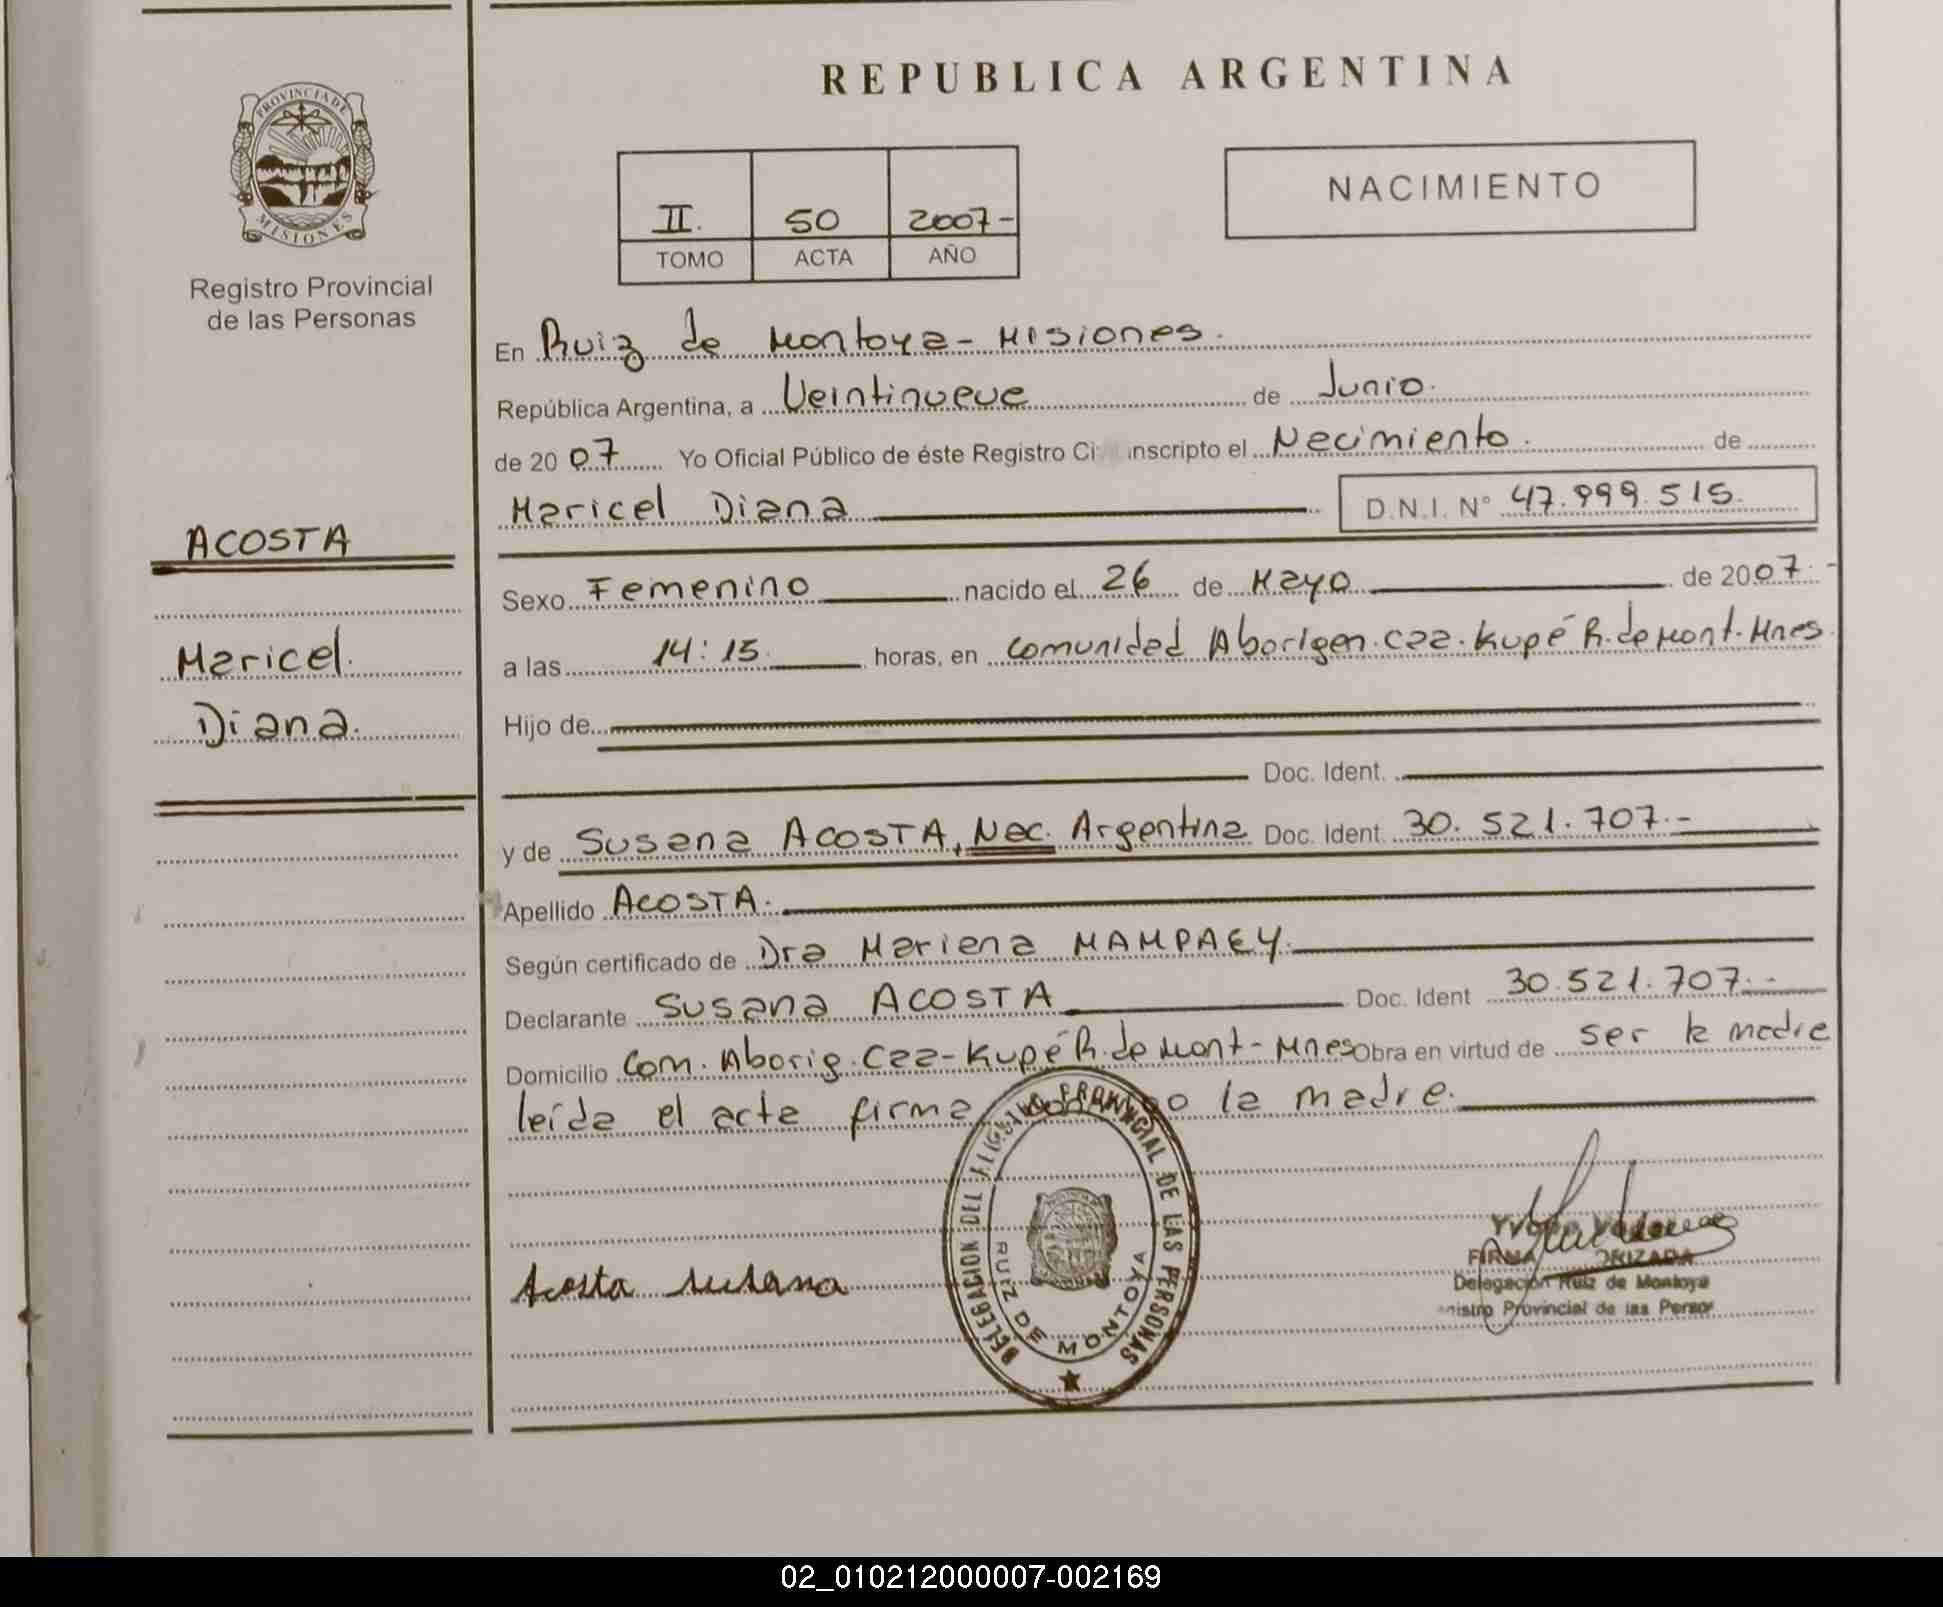 REPUBLICA ARGENTINA
PROVINCIA DE
MISIONES
Registro Provincial
de las Personas
II. 50 2007-
TOMO ACTA AÑO
NACIMIENTO
En Ruiz de Montoya - Misiones.
República Argentina, a Veintinueve de Junio.
de 20 07 Yo Oficial Público de éste Registro Ci inscripto el Nacimiento. de
Maricel Diana D.N.I. N° 47.999.515.
ACOSTA
Maricel.
Diana.
Sexo Femenino nacido el 26 de Mayo de 2007.-
a las 14:15 horas, en Comunidad Aborigen. Caa-Kupé R. de Mont. Mnes.
Hijo de
Doc. Ident.
y de Susana ACOSTA, Nac. Argentina Doc. Ident. 30.521.707.-
Apellido ACOSTA.
Según certificado de Dra Mariena MAMPAEY.
Declarante Susana ACOSTA Doc. Ident 30.521.707.-
Domicilio Com. Aborig. Caa-Kupé R. de Mont-Mnes Obra en virtud de ser la madre
leída el acta firma la madre.
DELEGACION DEL REGISTRO PROVINCIAL DE LAS PERSONAS
RUIZ DE MONTOYA
Acosta susana
FIRMA ORIZADA
Delegación Ruiz de Montoya
nistro Provincial de las Person
02_010212000007-002169